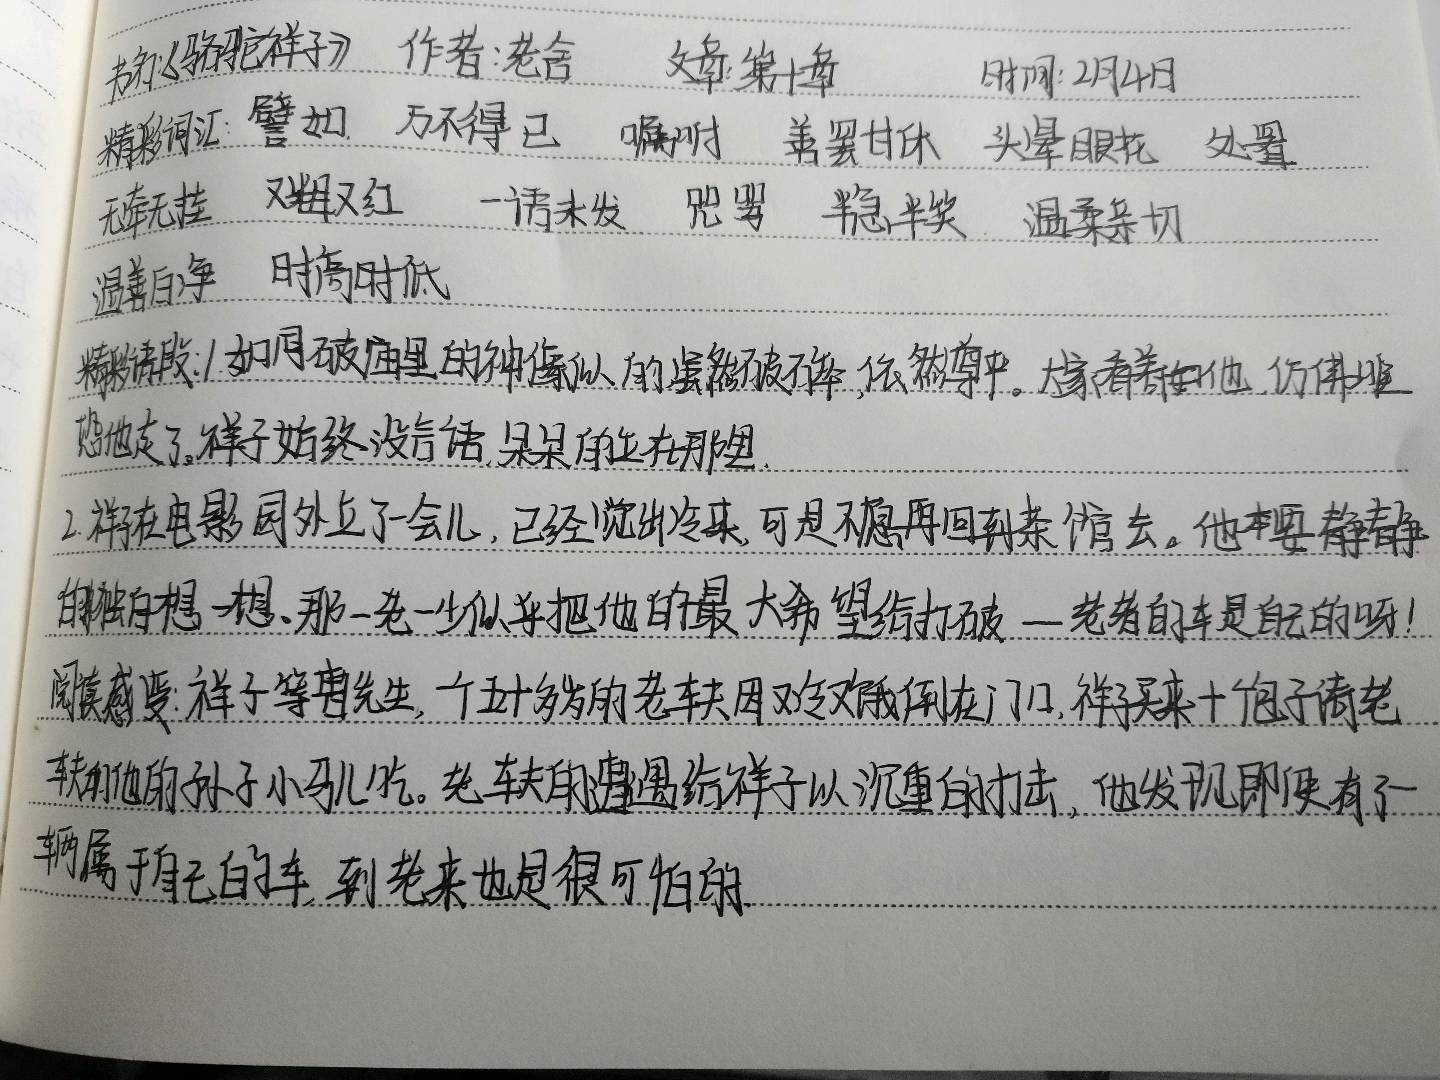 书名:《骆驼祥子》 作者:老舍 文章:第十章 时间:2月4日
精彩词汇: 譬如 万不得已 嘱咐 善罢甘休 头晕眼花 处置
无牵无挂 又粗又红 一语未发 咒骂 半急半笑 温柔亲切
温善白净 时高时低
精彩语段:1 如同破庙里的神像似的虽然破碎,依然尊严。大家看着他 仿佛唯
恐他走了。祥子始终没言语,呆呆的立在那里.
2.祥子在电影园外立了一会儿,已经觉出冷来,可是不愿再回到茶馆去。他本要静静
的独自想一想、那一老一少似乎把他的最大希望给打破—老者的车是自己的呀!
阅读感受:祥子等曹先生,一个五十多岁的老车夫因又冷又饿倒在门口,祥子买来十个包子请老
车夫和他的孙子小马儿吃。老车夫的遭遇给祥子以沉重的打击,他发现即使有了一
辆属于自己的车,到老来也是很可怕的.